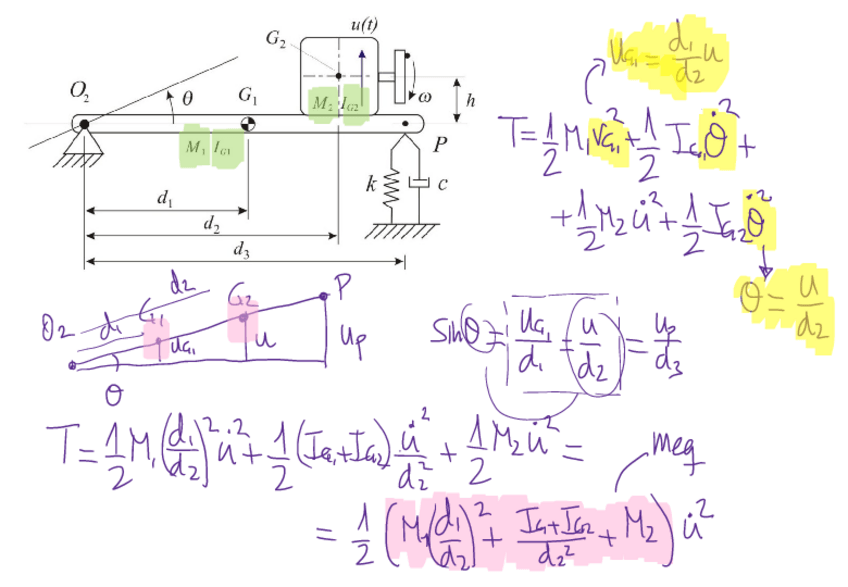 u(t)
G₂
O₂ θ G₁ M₂ I_G2 ω h
M₁ I_G1 P
k c
d₁
d₂
d₃
u_G₁ = d₁/d₂ u
T = 1/2 M₁ v_G₁² + 1/2 I_G₁ θ̇² +
+ 1/2 M₂ u̇² + 1/2 I_G₂ θ̇²
θ = u/d₂
d₂
O₂ d₁ G₁ G₂ P
u_G₁ u u_P
θ
sinθ = u_G₁/d₁ = u/d₂ = u_P/d₃
T = 1/2 M₁ (d₁/d₂)² u̇² + 1/2 (I_G₁ + I_G₂) u̇²/d₂² + 1/2 M₂ u̇² =
meq
= 1/2 (M₁ (d₁/d₂)² + (I_G₁ + I_G₂)/d₂² + M₂) u̇²